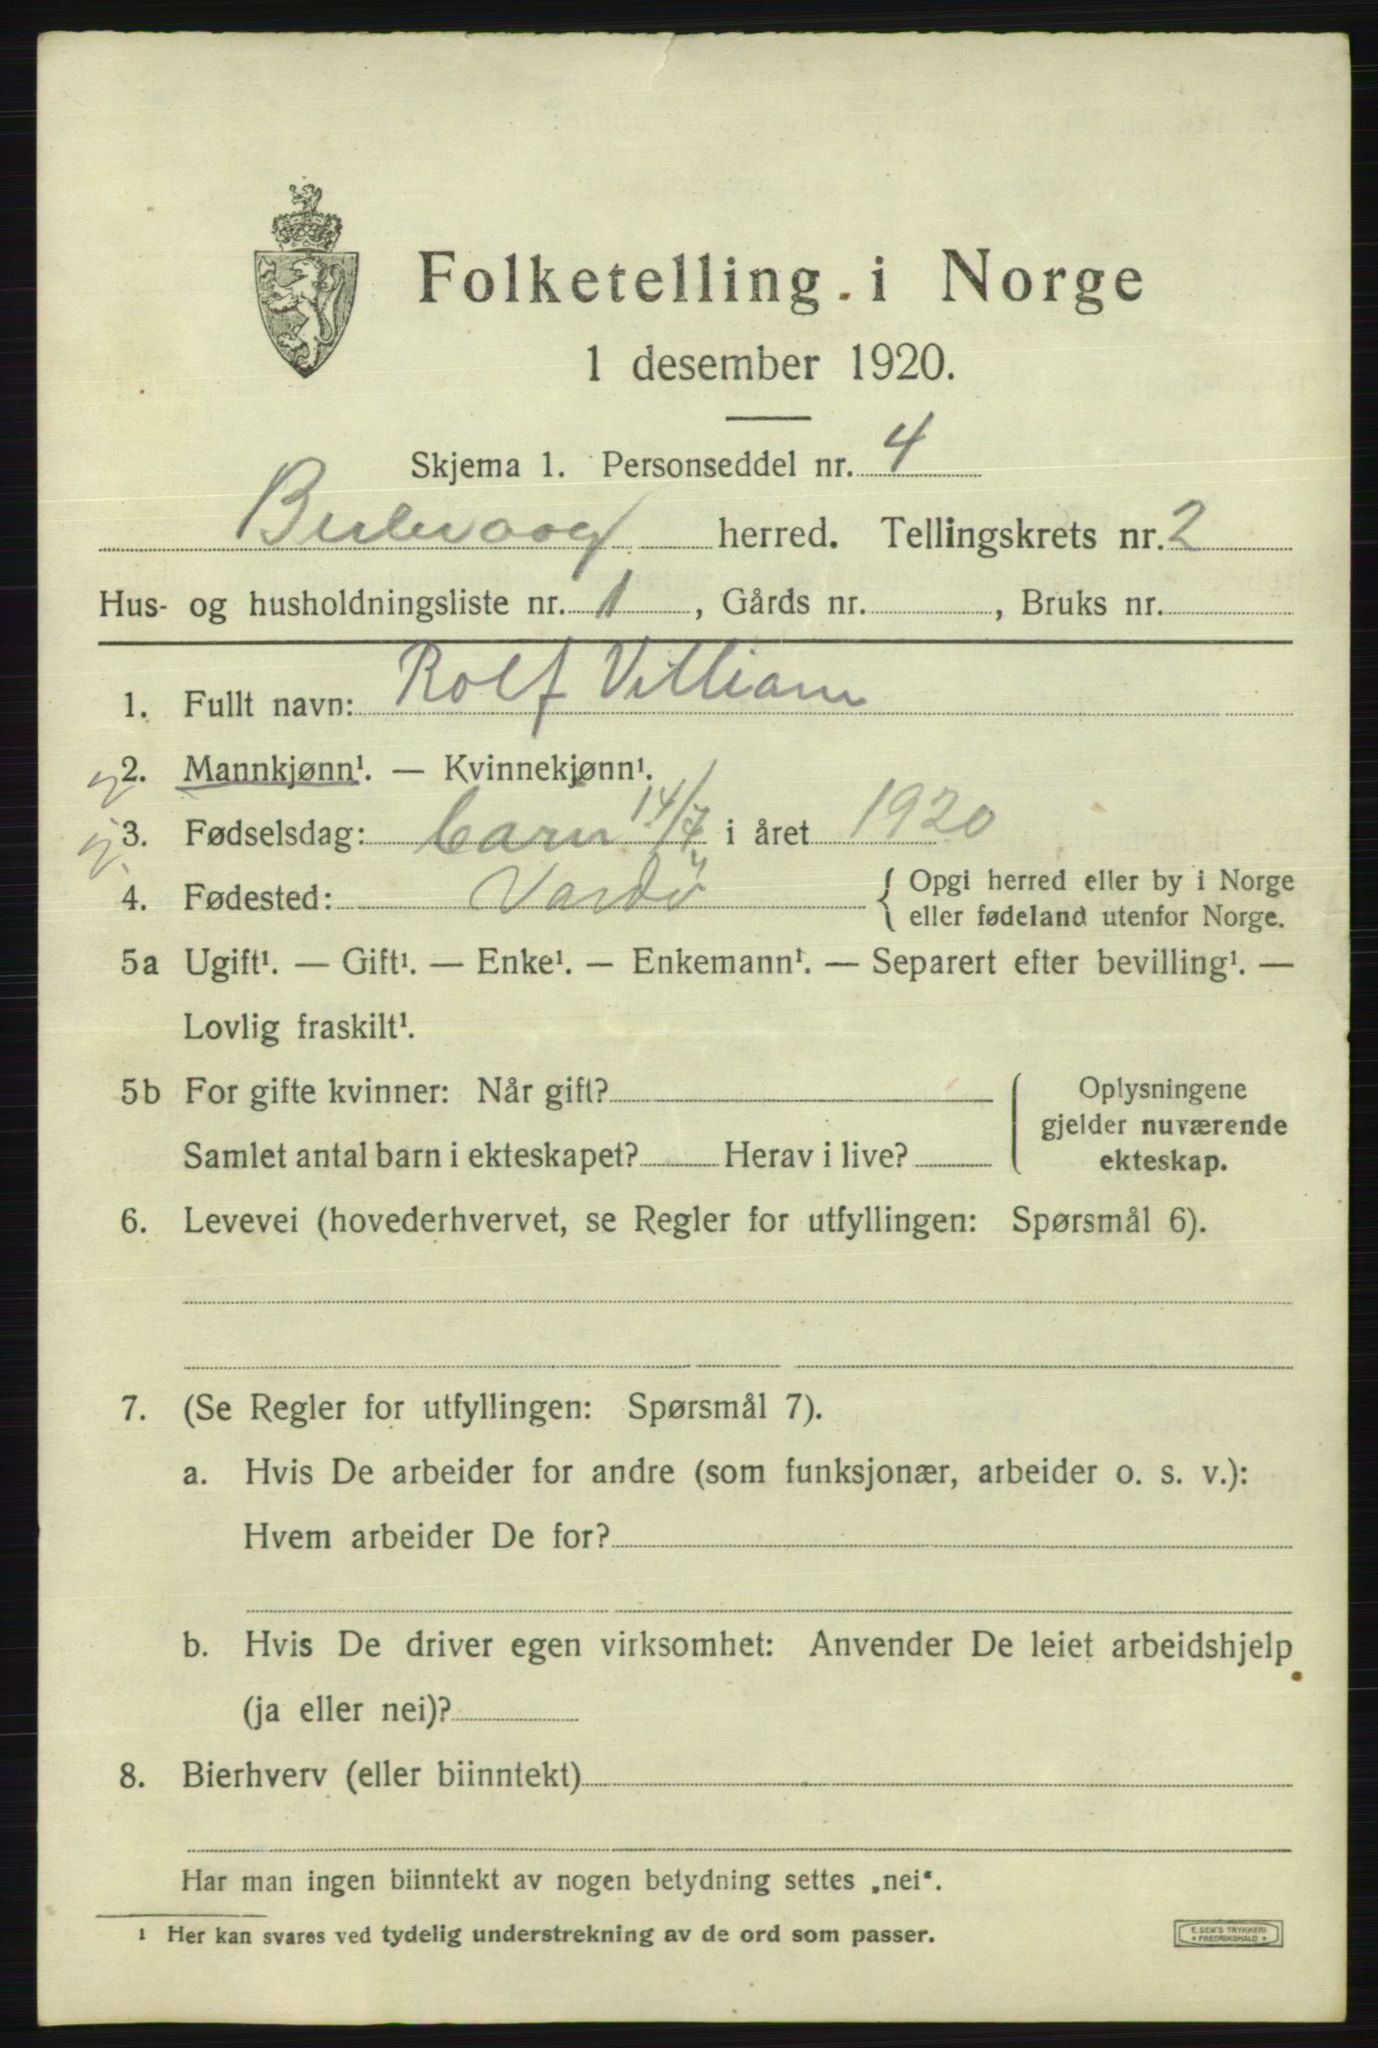 Folketelling i Norge
1 desember 1920.
Skjema 1. Personseddel nr. 4
Berlevaag herred. Tellingskrets nr. 2
Hus- og husholdningsliste nr. 1, Gårds nr. , Bruks nr.
1. Fullt navn: Rolf Villiam
2. Mannkjønn¹. — Kvinnekjønn¹.
3. Fødselsdag: barn 14/7 i året 1920
4. Fødested: Vardö { Opgi herred eller by i Norge
eller fødeland utenfor Norge.
5a Ugift¹. — Gift¹. — Enke¹. — Enkemann¹. — Separert efter bevilling¹. —
Lovlig fraskilt¹.
5b For gifte kvinner: Når gift?
Samlet antal barn i ekteskapet? Herav i live?
Oplysningene
gjelder nuværende
ekteskap.
6. Levevei (hovederhvervet, se Regler for utfyllingen: Spørsmål 6).
7. (Se Regler for utfyllingen: Spørsmål 7).
a. Hvis De arbeider for andre (som funksjonær, arbeider o. s. v.):
Hvem arbeider De for?
b. Hvis De driver egen virksomhet: Anvender De leiet arbeidshjelp
(ja eller nei)?
8. Bierhverv (eller biinntekt)
Har man ingen biinntekt av nogen betydning settes „nei“.
¹ Her kan svares ved tydelig understrekning av de ord som passer.
E. SEM'S TRYKKERI
* FREDRIKSHALD *